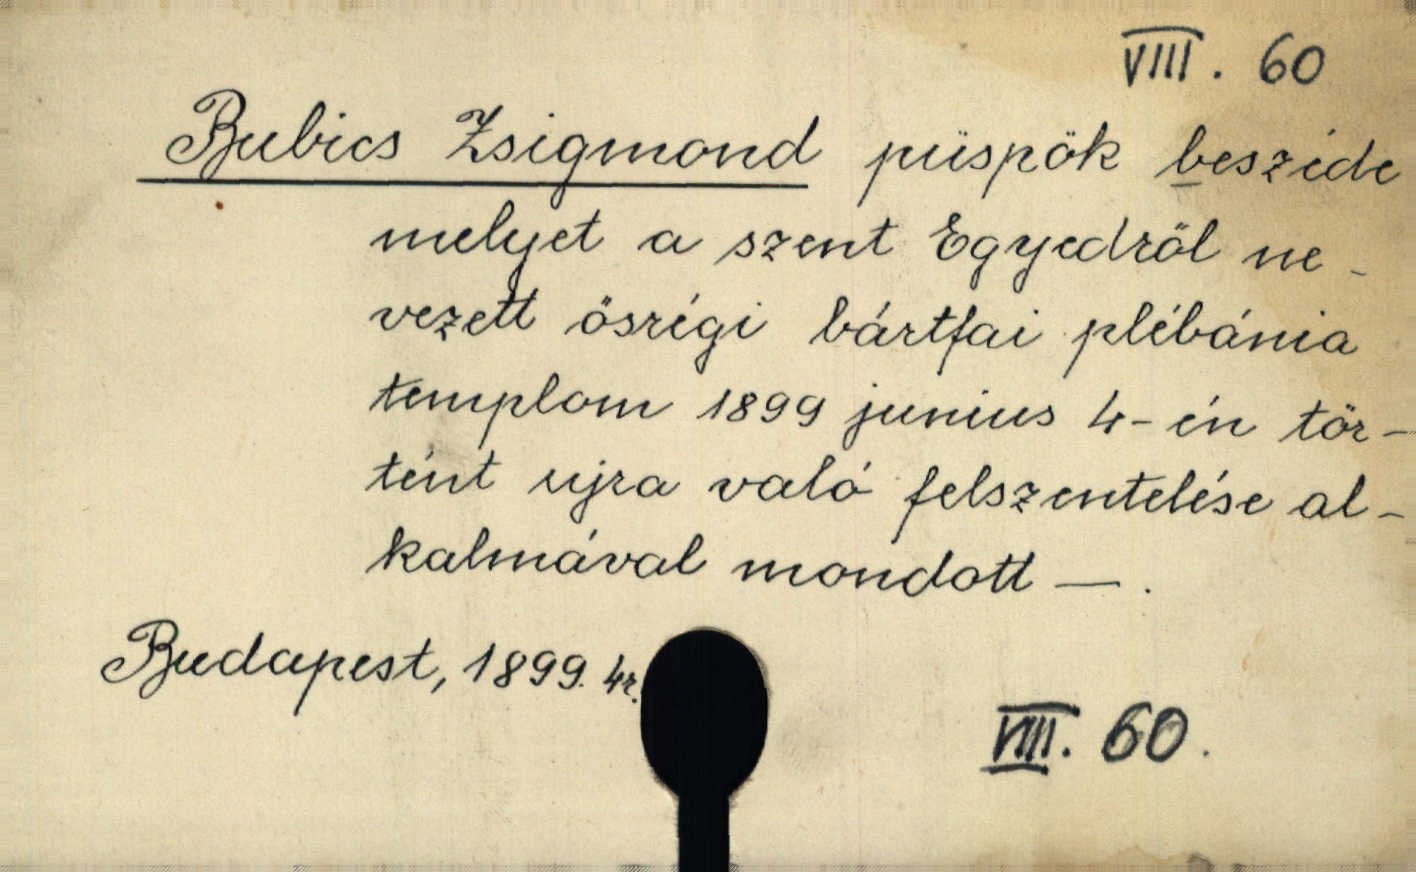 VIII. 60
Bubics Zsigmond püspök beszéde
melyet a szent Egyedről ne-
vezett ősrégi bártfai plébánia
templom 1899 junius 4-én tör-
tént ujra való felszentelése al-
kalmával mondott —.
Budapest, 1899. 4r.
VIII. 60.